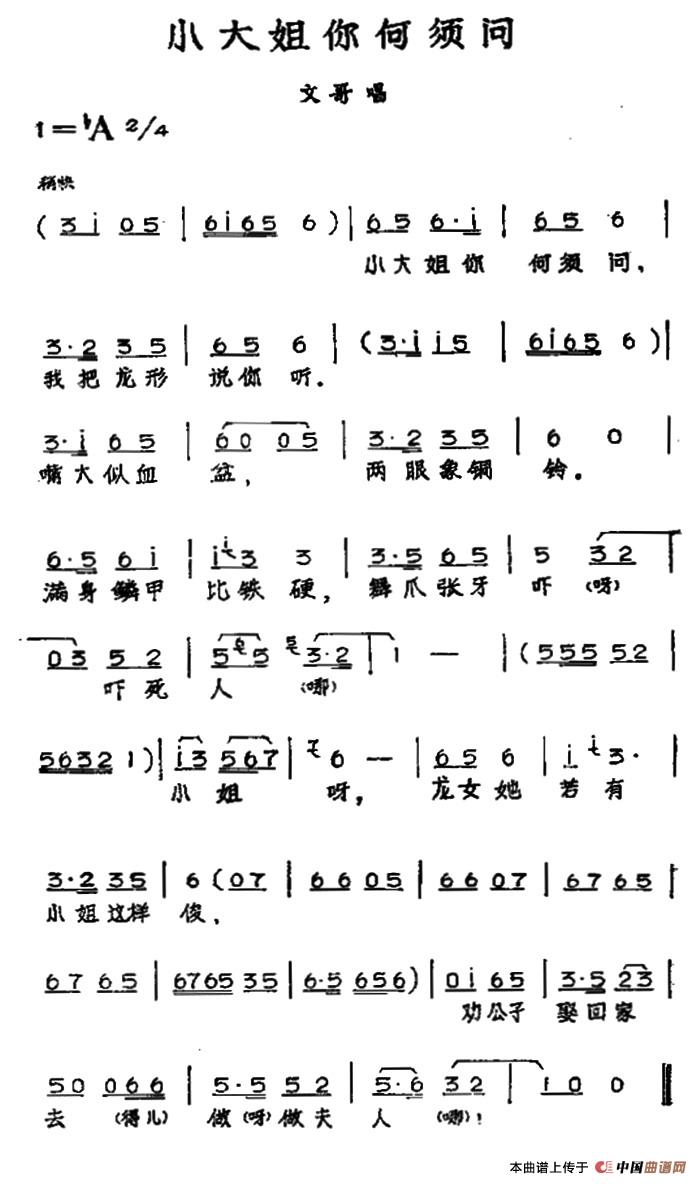 小大姐你何须问
文哥唱
1=♭A 2/4
稍快
( 3 i 0 5 | 6 i 6 5 6 ) | 6 5 6· i | 6 5 6 |
小大姐你 何须 问，
3· 2 3 5 | 6 5 6 | ( 3· i i 5 | 6 i 6 5 6 ) |
我把龙形 说你 听.
3· i 6 5 | 6 0 0 5 | 3· 2 3 5 | 6 0 |
嘴大似血 盆， 两眼象铜 铃。
6· 5 6 i | i 3 3 | 3· 5 6 5 | 5 3 2 |
满身鳞甲 比铁 硬， 舞爪张牙 吓 (呀)
0 3 5 2 | 5 6 5 5 3· 2 | 1 — | ( 5 5 5 5 2 |
吓死 人 (哪)
5 6 3 2 1 ) | i 3 5 6 7 | 7 6 — | 6 5 6 | i i 3· |
小 姐 呀， 龙女她 若有
3· 2 3 5 | 6 ( 0 7 | 6 6 0 5 | 6 6 0 7 | 6 7 6 5 |
小姐这样 俊，
6 7 6 5 | 6 7 6 5 3 5 | 6· 5 6 5 6 ) | 0 i 6 5 | 3· 5 2 3 |
劝公子 娶回家
5 0 0 6 6 | 5· 5 5 2 | 5· 6 3 2 | 1 0 0 ‖
去 (得儿) 做(呀)做夫 人 (哪)!
本曲谱上传于 中国曲谱网